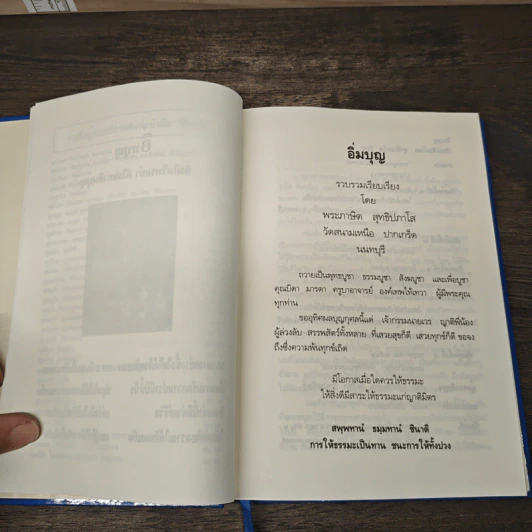 อิ่มบุญ
รวบรวมเรียบเรียง
โดย
พระภาษิต สุทธิปภาโส
วัดสนามเหนือ ปากเกร็ด
นนทบุรี
ถวายเป็นพุทธบูชา ธรรมบูชา สังฆบูชา และเพื่อบูชา
คุณบิดา มารดา ครูบาอาจารย์ องค์เทพไท้เทวา ผู้มีพระคุณ
ทุกท่าน
ขออุทิศผลบุญกุศลนี้แด่ เจ้ากรรมนายเวร ญาติพี่น้อง
ผู้ล่วงลับ สรรพสัตว์ทั้งหลาย ที่เสวยสุขก็ดี เสวยทุกข์ก็ดี ขอจง
ถึงซึ่งความพ้นทุกข์เถิด
มีโอกาสเมื่อใดควรให้ธรรมะ
ให้สิ่งดีมีสาระให้ธรรมะแก่ญาติมิตร
สพฺพทานํ ธมฺมทานํ ชินาติ
การให้ธรรมะเป็นทาน ชนะการให้ทั้งปวง